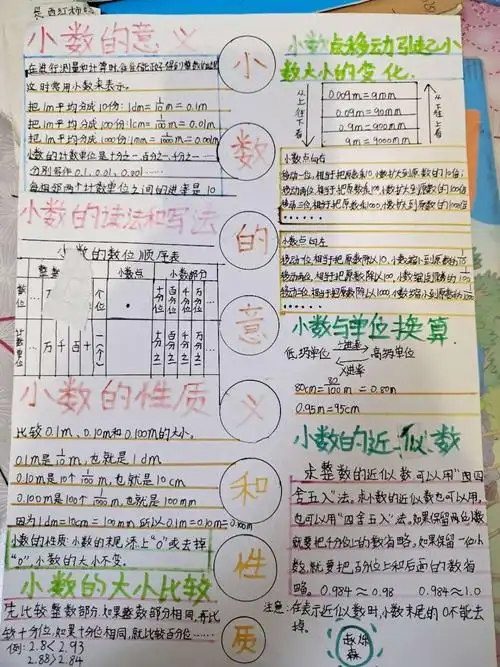 小数的意义
这时常用小数来表示。
把1m平均分成10份:1dm=1/10m=0.1m
把1m平均分成100份:1cm=1/100m=0.01m
把1m平均分成1000份:1mm=1/1000m=0.001m
小数的计数单位是十分之一、百分之一、千分之一……
分别写作0.1、0.01、0.001……
每相邻两个计数单位之间的进率是10
小数的读法和写法
小数的数位顺序表
整数 小数点 小数部分
数位 … 万 个位 · 十分位 百分位 千分位 万分位 …
计数单位 … 万 千 百 十 (个) 十分之一 百分之一 千分之一 万分之一 …
小数的性质
比较0.1m、0.10m和0.100m的大小。
0.1m是1/10m,也就是1dm
0.10m是10个1/100m,也就是10cm
0.100m是100个1/1000m,也就是100mm
因为1dm=10cm=100mm所以0.1m=0.10m=0.100m
小数的性质:小数的末尾添上"0"或去掉
"0",小数的大小不变。
小数的大小比较
先比较整数部分,如果整数部分相同,再比
较十分位,如果十分位相同,就比较百分位……
例:2.8<2.93
2.88>2.84
小
数
的
意
义
和
性
质
小数点移动引起小
数大小的变化
从上往下看
0.009m=9mm
0.09m=90mm
0.9m=900mm
9m=9000mm
从下往上看
小数点向右
移动一位,相当于把原数乘10,小数扩大到原数的10倍;
移动两位,相当于把原数乘100,小数扩大到原数的100倍
移动三位,相当于把原数乘1000,小数扩大到原数的1000倍
……
小数点向左
移动一位,相当于把原数除以10,小数缩小到原数的1/10
移动两位,相当于把原数除以100,小数缩小到原数的1/100
移动三位,相当于把原数除以1000,小数缩小到原数的1/1000
……
小数与单位换算
低级单位 ÷进率 高级单位
×进率
80cm=80/100m=0.80m
0.95m=95cm
小数的近似数
求整数的近似数可以用"四
舍五入"法,求小数的近似数也可以用,
也可以用"四舍五入"法,如果保留两位小数
就要把千分位上的数省略,如果保留一位小
数,就要把百分位上和后面的数省
略。0.984≈0.98 0.984≈1.0
注意:在表示近似数时,小数末尾的0不能去
掉。